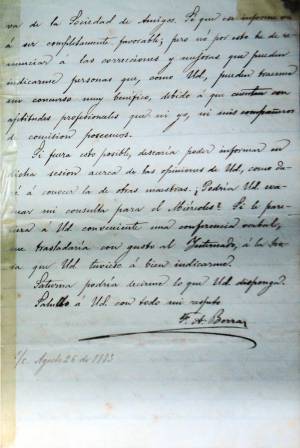 va de la Sociedad de Amigos. Sé que ese informe va
á ser completamente favorable; pero no por esto he de re-
nunciar á las correciones y mejoras que puedan
indicarme personas que, como Ud., pueden traerme
un concurso muy benéfico, debido á que cuentan con
aptitudes profesionales que ni yo, ni mis compañeros
de comision poseemos.
Si fuera esto posible, desearia poder informar en
dicha sesion acerca de las opiniones de Ud., como da-
ré á conocer la de otras maestras. ¿Podria Ud.
mi consulta para el Miércoles? Si le pare-
ciera á Ud. conveniente una conferencia verbal,
me trasladaria con gusto al Internado, á la ho-
ra que Ud. tuviese á bien indicarme.
Saturna podria decirme lo que Ud. disponga.
Saludo á Ud. con todo mi respeto
F. A. Berra
S/c. Agosto 26 de 1883